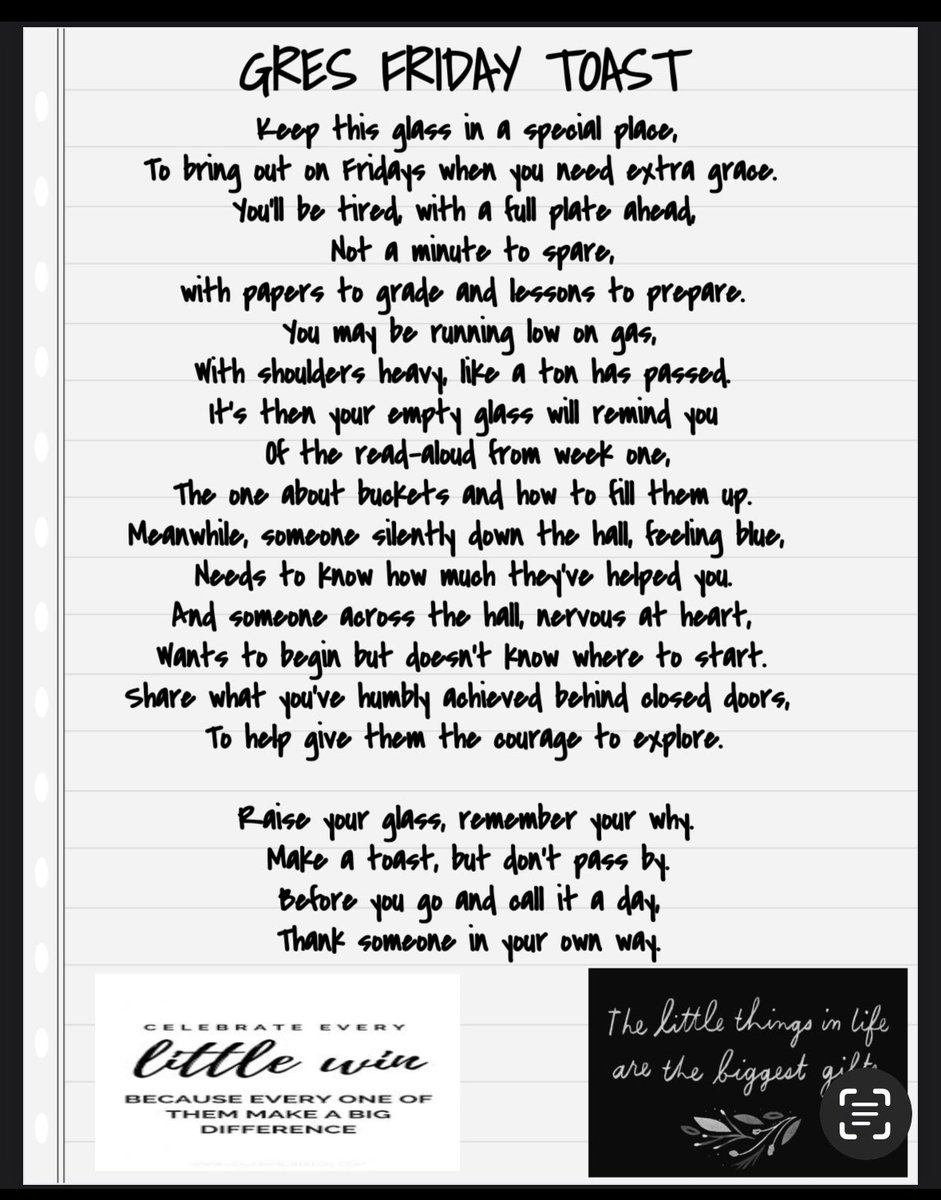 GRES FRIDAY TOAST
Keep this glass in a special place,
To bring out on Fridays when you need extra grace.
You'll be tired, with a full plate ahead,
Not a minute to spare,
with papers to grade and lessons to prepare.
You may be running low on gas,
With shoulders heavy, like a ton has passed.
It's then your empty glass will remind you
Of the read-aloud from week one,
The one about buckets and how to fill them up.
Meanwhile, someone silently down the hall, feeling blue,
Needs to know how much they've helped you.
And someone across the hall, nervous at heart,
Wants to begin but doesn't know where to start.
Share what you've humbly achieved behind closed doors,
To help give them the courage to explore.
Raise your glass, remember your why.
Make a toast, but don't pass by.
Before you go and call it a day,
Thank someone in your own way.
CELEBRATE EVERY
little win
BECAUSE EVERY ONE OF
THEM MAKE A BIG
DIFFERENCE
The little things in life
are the biggest